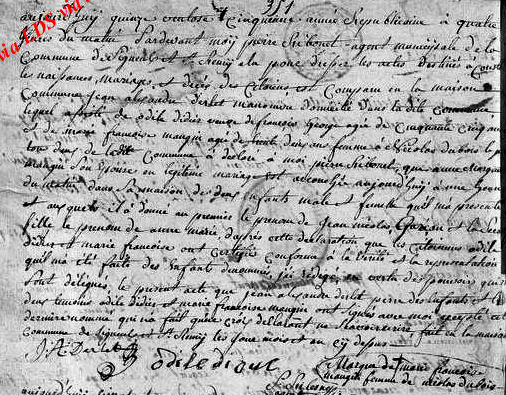 351
aujourd'huy quinze ventose cinquieme annee Republicaine à quatre
heures du matin pardevant moy pierre agent municipale de la
Commune de et St Remy elu pour dresser les actes destinés à
les naissances, mariages, et décès des Citoiens est Comparu en la maison
Commune jean alexandre derlet domicilié dans la dite Commune
lequel assisté de odile didier veuve de françois George agée de Cinquante Cinq ans
et de marie françoise mangin agée de trente deux ans femme à Nicolas dubois
tous deux de la dite Commune à déclaré à moi pierre que anne Marguerite
mangin Son épouse en légitime mariage est accouchée aujourd'huy à une heure
du matin dans Sa maison de deux Enfants male et femelle qu'il ma présenté
et auxquels il à donné au premier le prenom de jean nicolas Garçon et la Seconde
fille le prenom de anne marie d'après cette declaration que les Citoiennes odile
didier et marie francoise ont Certifiés Conforme à la Vérité et la représentation
qu'il ma été faite des Enfants denommés, j'ai rédigé en vertu des pouvoirs qui me
Sont délégués, le present acte que jean alexandre derlet pere des enfants et les
deux temoins odile didier et marie francoise mangin ont Signés avec moi excepté cette
derniere nomme qui n'a fait qu'une croix declarant ne Savoir ecrire fait en la maison
Commune de et St Remy les jour mois et an cy dessus
J. A. Derlet
odile didier
Marque de marie francoise
mangin femme de nicolas dubois